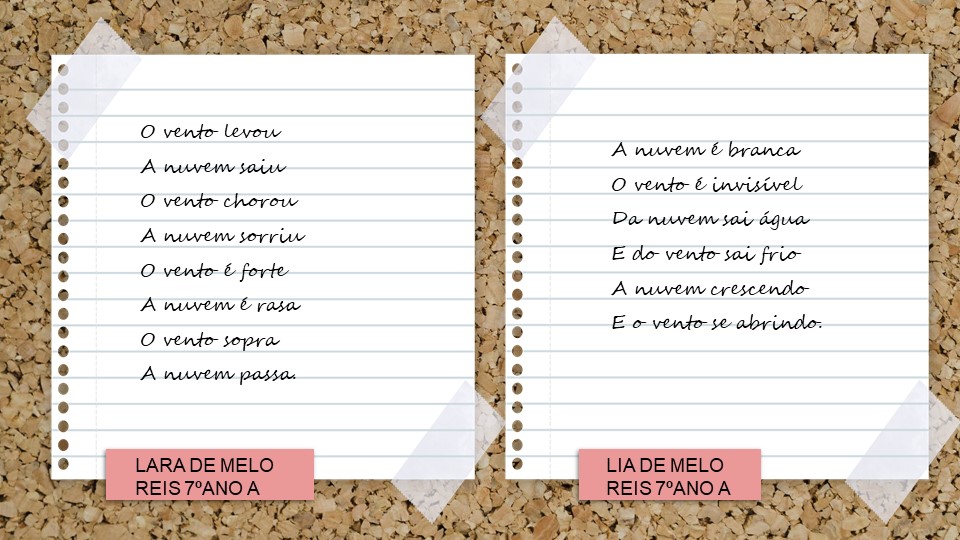 O vento levou
A nuvem saiu
O vento chorou
A nuvem sorriu
O vento é forte
A nuvem é rasa
O vento sopra
A nuvem passa.
LARA DE MELO
REIS 7ºANO A
A nuvem é branca
O vento é invisível
Da nuvem sai água
E do vento sai frio
A nuvem crescendo
E o vento se abrindo.
LIA DE MELO
REIS 7ºANO A